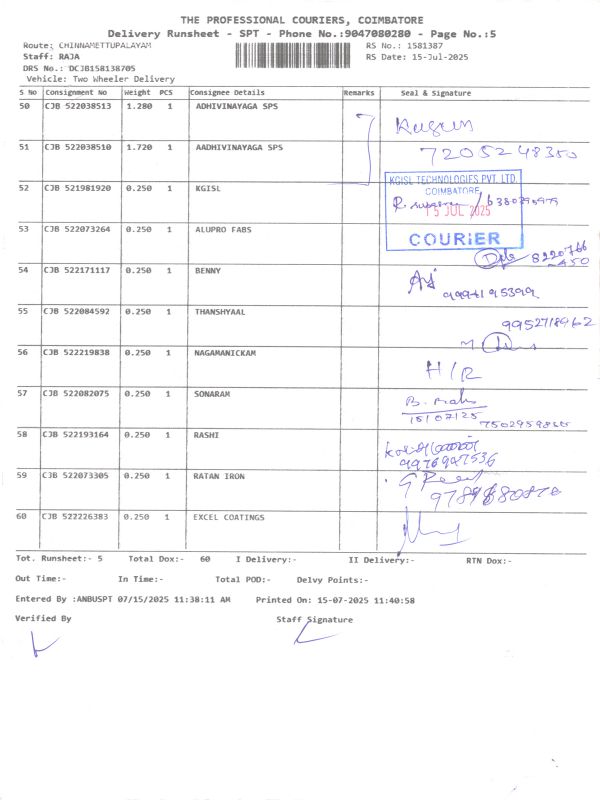 THE PROFESSIONAL COURIERS, COIMBATORE
Delivery Runsheet - SPT - Phone No.:9047080280 - Page No.:5
Route: CHINNAMETTUPALAYAM RS No.: 1581387
Staff: RAJA RS Date: 15-Jul-2025
DRS No.: DCJB158138705
Vehicle: Two Wheeler Delivery
S No Consignment No Weight PCS Consignee Details Remarks Seal & Signature
50 CJB 522038513 1.280 1 ADHIVINAYAGA SPS
51 CJB 522038510 1.720 1 AADHIVINAYAGA SPS 7205248350
52 CJB 521981920 0.250 1 KGISL
KGISL TECHNOLOGIES PVT. LTD.
COIMBATORE
15 JUL 2025
COURIER
53 CJB 522073264 0.250 1 ALUPRO FABS 8220766
450
54 CJB 522171117 0.250 1 BENNY
55 CJB 522084592 0.250 1 THANSHYAAL 9952718962
56 CJB 522219838 0.250 1 NAGAMANICKAM H/R
57 CJB 522082075 0.250 1 SONARAM
15/07/25
58 CJB 522193164 0.250 1 RASHI
9976927536
59 CJB 522073305 0.250 1 RATAN IRON
60 CJB 522226383 0.250 1 EXCEL COATINGS
Tot. Runsheet:- 5 Total Dox:- 60 I Delivery:- II Delivery:- RTN Dox:-
Out Time:- In Time:- Total POD:- Delvy Points:-
Entered By :ANBUSPT 07/15/2025 11:38:11 AM Printed On: 15-07-2025 11:40:58
Verified By Staff Signature